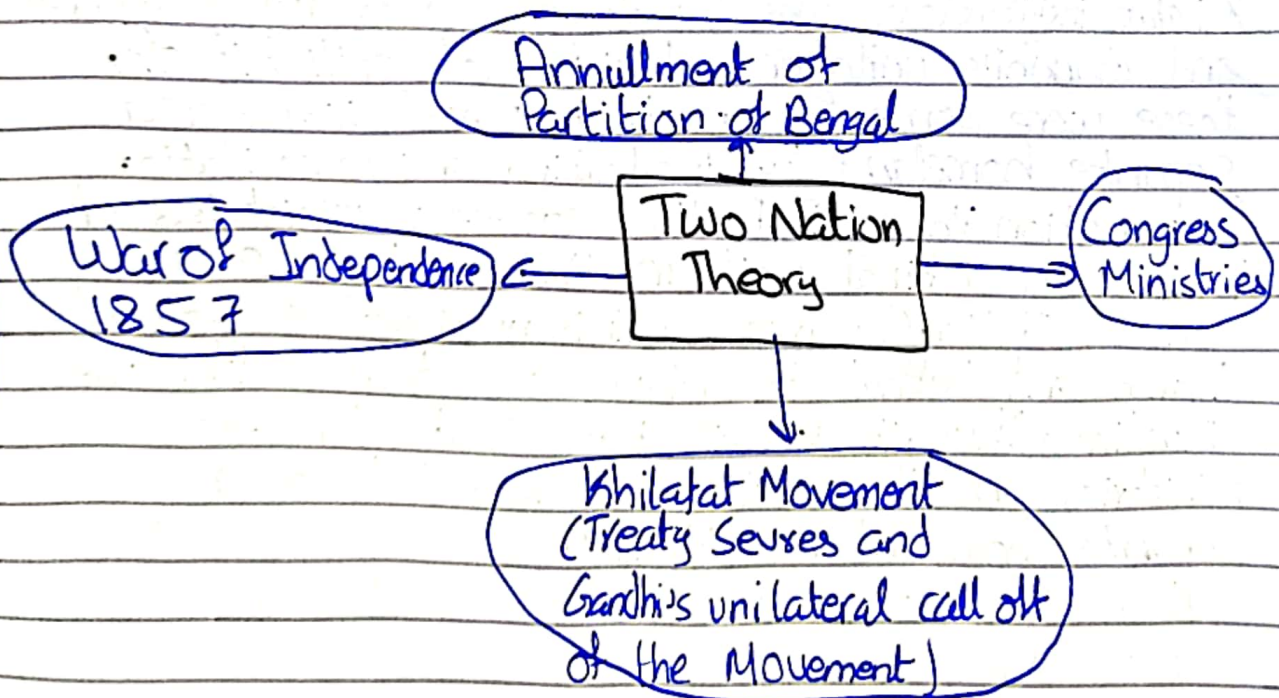 Annullment of
Partition of Bengal
Two Nation
Theory
War of Independence
1857
Congress
Ministries
Khilafat Movement
(Treaty Sevres and
Gandhi's unilateral call off
of the Movement)